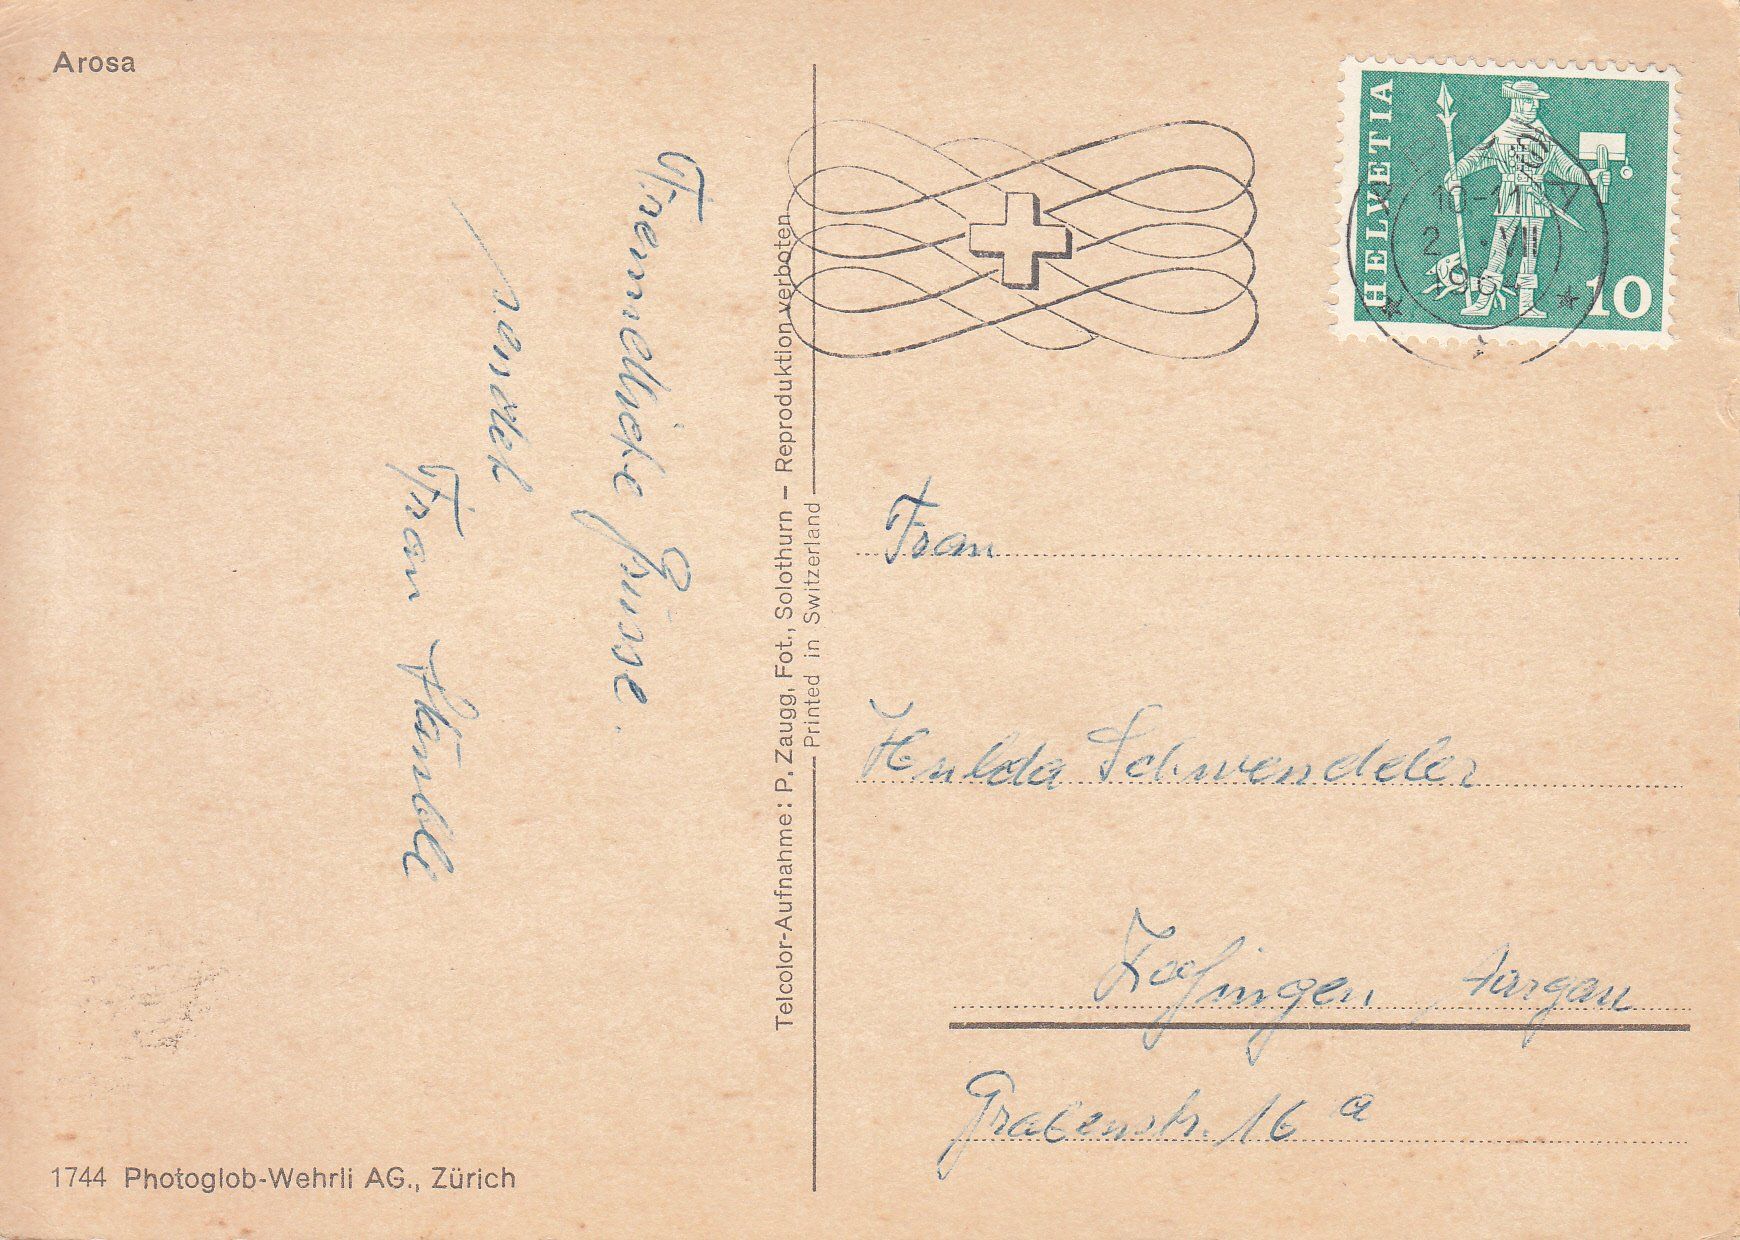 Arosa
Freundliche Grüsse.
sendet
Frau Stäuble
1744 Photoglob-Wehrli AG., Zürich
Telcolor-Aufnahme: P. Zaugg, Fot., Solothurn – Reproduktion verboten
Printed in Switzerland
HELVETIA
10
10-11
2 . VII
1964
Frau
Hulda Schwendeler
Zofingen Aargau
Grabenstr. 16 a